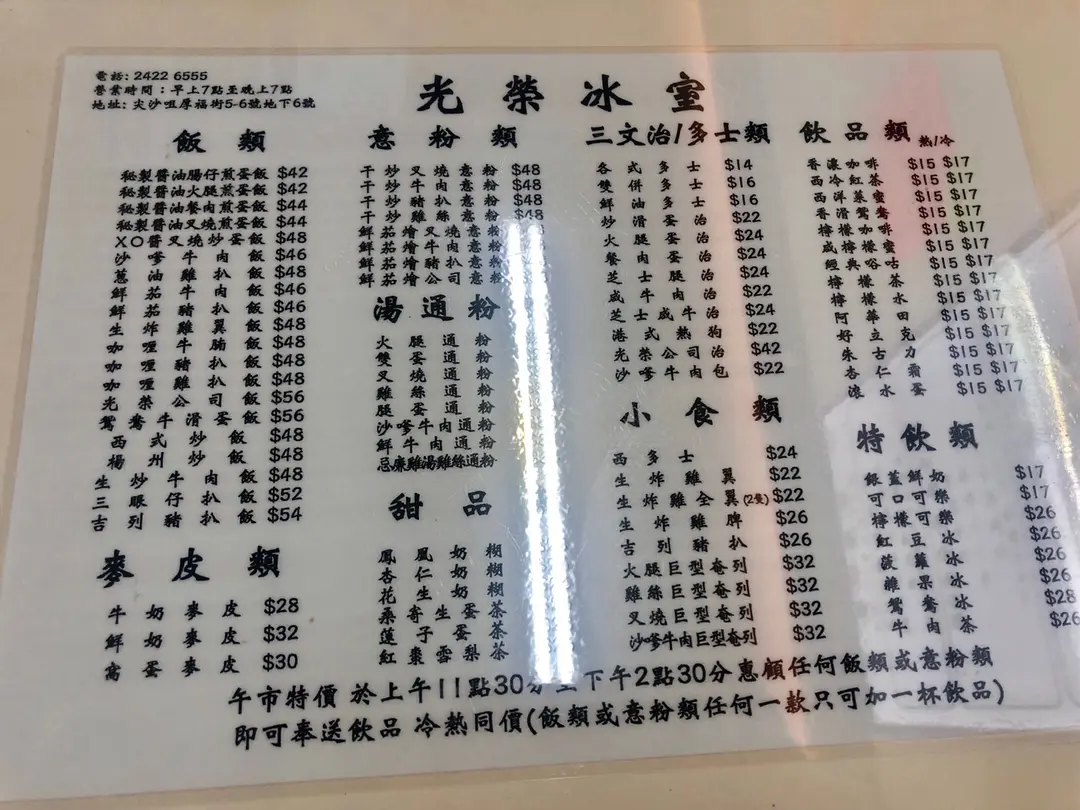 電話: 2422 6555
營業時間：早上7點至晚上7點
地址: 尖沙咀厚福街5-6號地下6號
光榮冰室
飯類
秘製醬油腸仔煎蛋飯 $42
秘製醬油火腿煎蛋飯 $42
秘製醬油餐肉煎蛋飯 $44
秘製醬油叉燒煎蛋飯 $44
XO醬叉燒炒蛋飯 $48
沙嗲牛肉飯 $46
蔥油雞扒飯 $48
鮮茄牛肉飯 $46
鮮茄豬扒飯 $46
生炸雞翼飯 $48
咖喱牛腩飯 $48
咖喱豬扒飯 $48
咖喱雞扒飯 $48
光榮公司飯 $56
鴛鴦牛滑蛋飯 $56
西式炒飯 $48
楊州炒飯 $48
生炒牛肉飯 $48
三眼仔扒飯 $52
吉列豬扒飯 $54
麥皮類
牛奶麥皮 $28
鮮奶麥皮 $32
窩蛋麥皮 $30
意粉類
干炒叉燒意粉 $48
干炒牛肉意粉 $48
干炒豬扒意粉 $48
干炒雞絲意粉 $48
鮮茄燴叉燒意粉
鮮茄燴牛肉意粉
鮮茄燴豬扒意粉
鮮茄燴公司意粉
湯通粉
火腿通粉
雙蛋通粉
叉燒通粉
雞絲通粉
腿蛋通粉
沙嗲牛肉通粉
鮮牛肉通粉
忌廉雞湯雞絲通粉
甜品
鳳凰奶糊
杏仁奶糊
花生奶糊
桑寄生蛋茶
蓮子蛋茶
紅棗雪梨茶
三文治/多士類
各式多士 $14
雙併多士 $16
鮮油多士 $16
炒滑蛋治 $22
火腿蛋治 $24
餐肉蛋治 $24
芝士腿治 $24
咸牛肉治 $22
芝士咸牛治 $24
港式熱狗 $22
光榮公司治 $42
沙嗲牛肉包 $22
小食類
西多士 $24
生炸雞翼 $22
生炸雞全翼(2隻) $22
生炸雞脾 $26
吉列豬扒 $26
火腿巨型奄列 $32
雞絲巨型奄列 $32
叉燒巨型奄列 $32
沙嗲牛肉巨型奄列 $32
飲品類 熱/冷
香濃咖啡 $15 $17
西冷紅茶 $15 $17
西洋菜蜜 $15 $17
香滑鴛鴦 $15 $17
檸檬咖啡 $15 $17
咸檸檬蜜 $15 $17
經典唂咕 $15 $17
檸檬茶 $15 $17
檸檬水 $15 $17
阿華田 $15 $17
好立克 $15 $17
朱古力 $15 $17
杏仁霜 $15 $17
滾水蛋 $15 $17
特飲類
銀蓋鮮奶 $17
可口可樂 $17
檸檬可樂 $26
紅豆冰 $26
菠蘿冰 $26
雜果冰 $26
鴛鴦冰 $28
牛肉茶 $26
午市特價 於上午11點30分至下午2點30分惠顧任何飯類或意粉類
即可奉送飲品 冷熱同價(飯類或意粉類任何一款只可加一杯飲品)